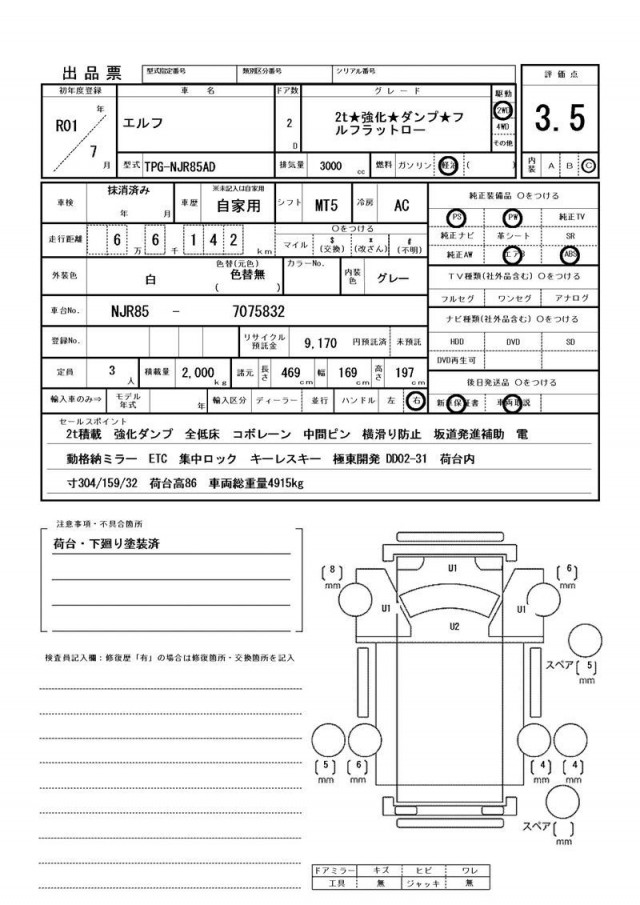 出品票
型式指定番号 類別区分番号 シリアル番号
評価点
初年度登録 車名 ドア数 グレード 駆動
R01 年 エルフ 2 D 2t★強化★ダンプ★フルフラットロー 2WD 3.5
7 月 4WD
その他
型式 TPG-NJR85AD 排気量 3000 cc 燃料 ガソリン 軽油 ( ) 内装 A B C
車検 抹消済み 年 月 車歴 ※未記入は自家用 自家用 シフト MT5 冷房 AC 純正装備品 ○をつける
PS PW 純正TV
走行距離 6 万 6 千 1 4 2 km ○をつける マイル $ (交換) * (改ざん) # (不明) 純正ナビ 革シート SR
純正AW エアB ABS
外装色 白 色替(元色) 色替無 ( ) カラーNo. 内装色 グレー TV種類(社外品含む) ○をつける
フルセグ ワンセグ アナログ
車台No. NJR85 - 7075832 ナビ種類(社外品含む) ○をつける
登録No. リサイクル預託金 9,170 円預託済 未預託 HDD DVD SD
DVD再生可
定員 3 人 積載量 2,000 kg 諸元 長さ 469 cm 幅 169 cm 高さ 197 cm 後日発送品 ○をつける
輸入車のみ⇒ モデル年式 年 輸入区分 ディーラー 並行 ハンドル 左 右 新車保証書 車両取説
セールスポイント
2t積載 強化ダンプ 全低床 コボレーン 中間ピン 横滑り防止 坂道発進補助 電
動格納ミラー ETC 集中ロック キーレスキー 極東開発 DD02-31 荷台内
寸304/159/32 荷台高86 車両総重量4915kg
注意事項・不具合箇所
荷台・下廻り塗装済
検査員記入欄：修復歴「有」の場合は修復箇所・交換箇所を記入
U1
(8) mm (6) mm
U1 U1
U2
スペア(5) mm
(5) mm (6) mm (4) mm (4) mm
スペア( ) mm
ドアミラー キズ ヒビ ワレ
工具 無 ジャッキ 無